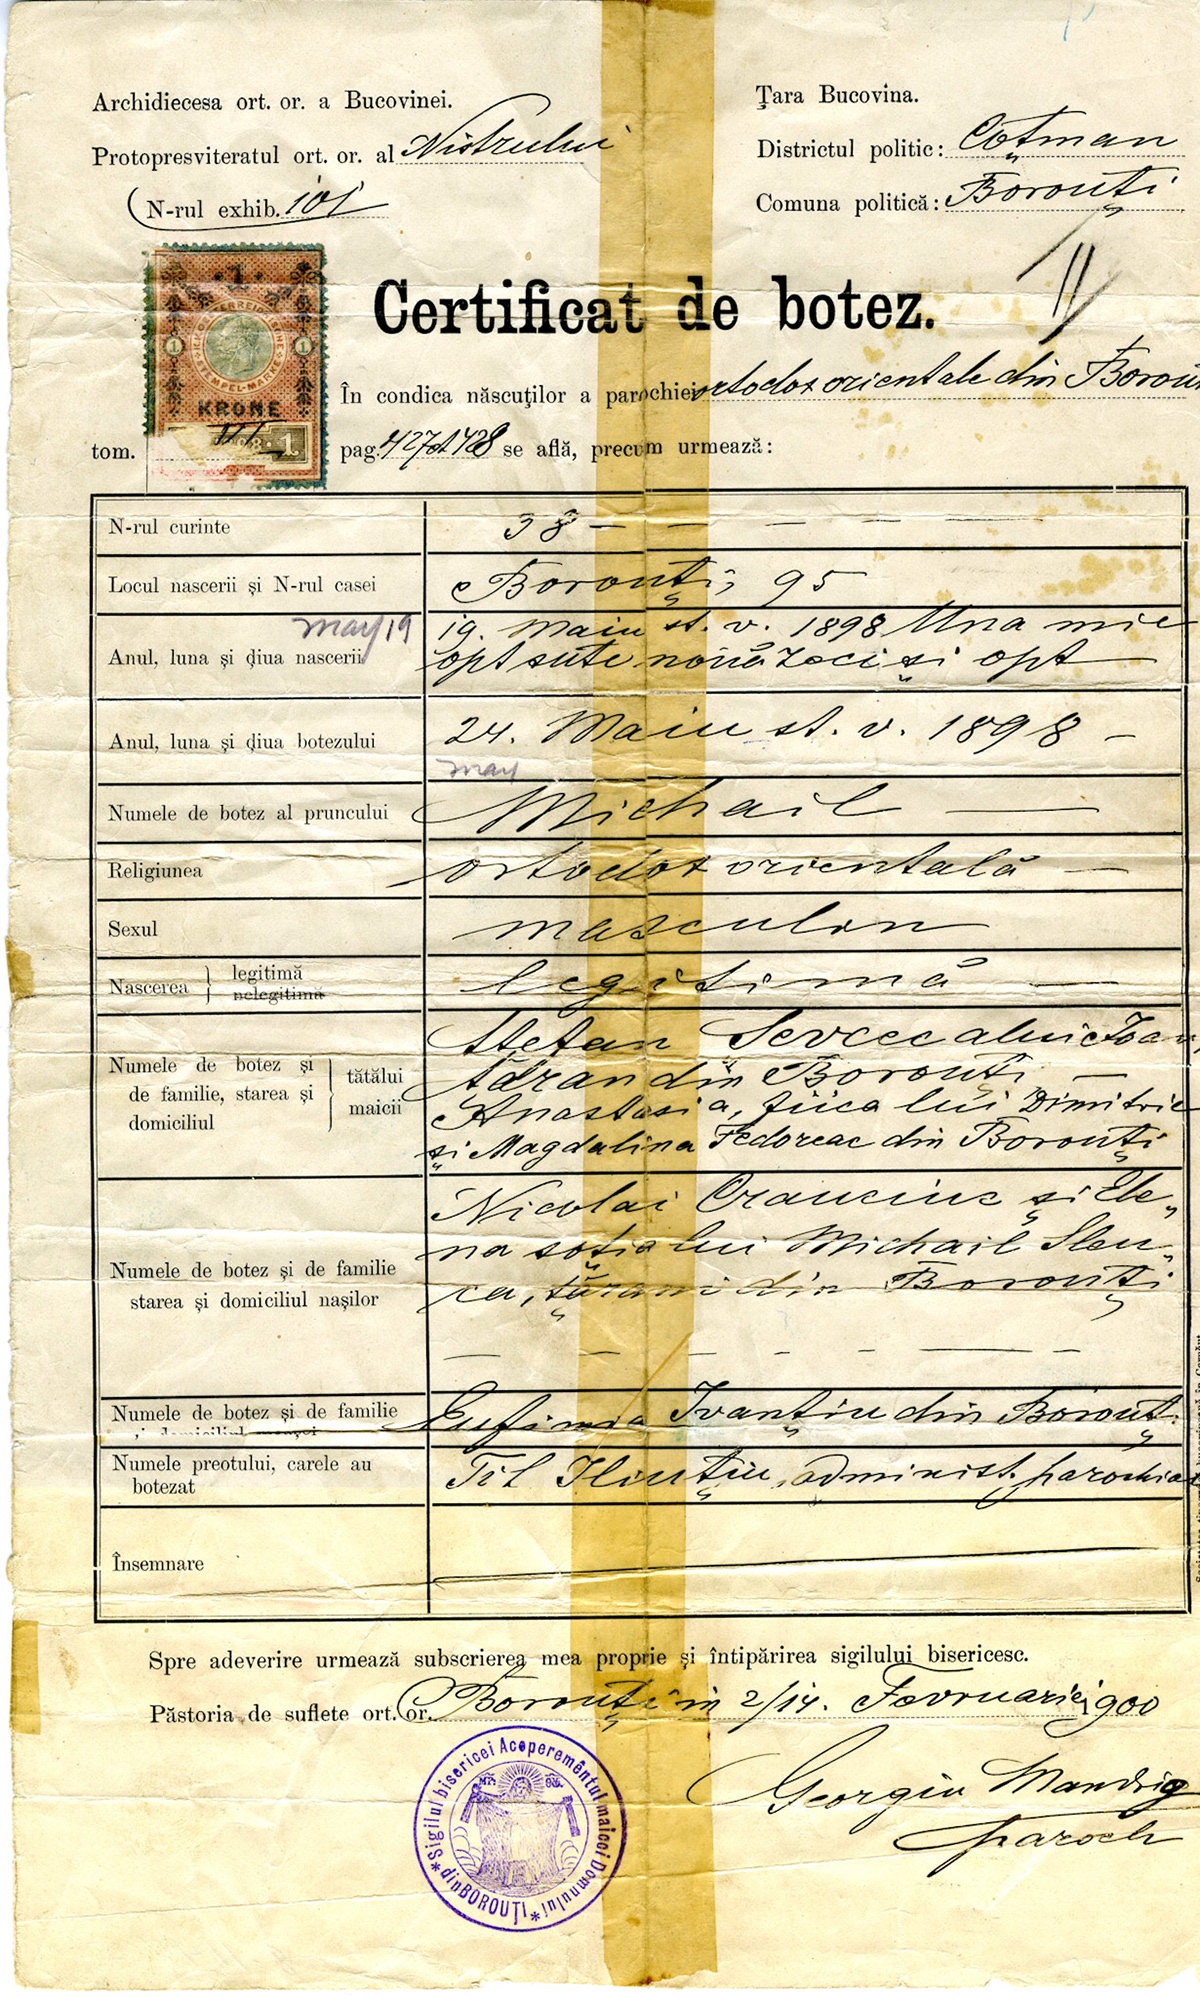 Archidiecesa ort. or. a Bucovinei.
Țara Bucovina.
Protopresviteratul ort. or. al Nistrului
Districtul politic: Coțman
N-rul exhib. 101
Comuna politică: Borouți
Certificat de botez.
1
KRONE
STEMPEL-MARKE
În condica născuților a parochiei ortodox orientale din Borou
tom. III pag. 427 et 428 se află, precum urmează:
N-rul curinte 38
Locul nascerii și N-rul casei Borouți, 95
may 19
Anul, luna și diua nascerii 19. Maiu st. v. 1898 Una mie
opt sute nouă zeci și opt
Anul, luna și diua botezului 24. Maiu st. v. 1898
may
Numele de botez al pruncului Michail
Religiunea ortodox orientală
Sexul masculin
Nascerea legitimă nelegitimă legitimă
Numele de botez și de familie, starea și domiciliul tătălui maicii
Ștefan Sevcec a lui Ioan,
țăran din Borouți
Anastasia, fiica lui Dimitrie
și Magdalina Fedoreac din Borouți
Numele de botez și de familie starea și domiciliul nașilor
Nicolai Crauciuc și Ele-
na soția lui Michail
țărani din Borouți
Numele de botez și de familie
și domiciliul moașei
Eufimia Ivanțiu din Borouț.
Numele preotului, carele au botezat
Til Iliuțiu, administ. parochial
Însemnare
Spre adeverire urmează subscrierea mea proprie și întipărirea sigilului bisericesc.
Păstoria de suflete ort. or. Borouți in 2/14. Fevruarie 1900
Georgiu Mandrig
paroch
Sigilul bisericei Acoperemêntul maicei Domnului
din BOROUȚI